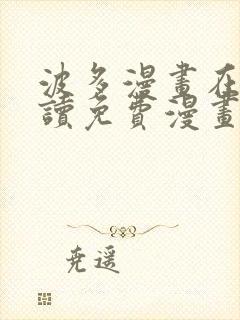 波多漫畫在
讀免費漫畫
堯遥